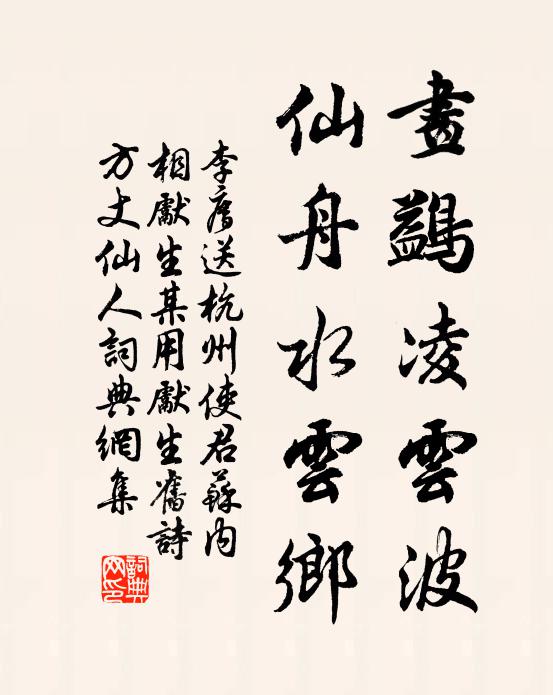 畫鷁凌雲波
仙舟水雲鄉
李廌送杭州使君蘇内
相獻生某用獻生舊詩
方丈仙人詞典網集
詞典网印